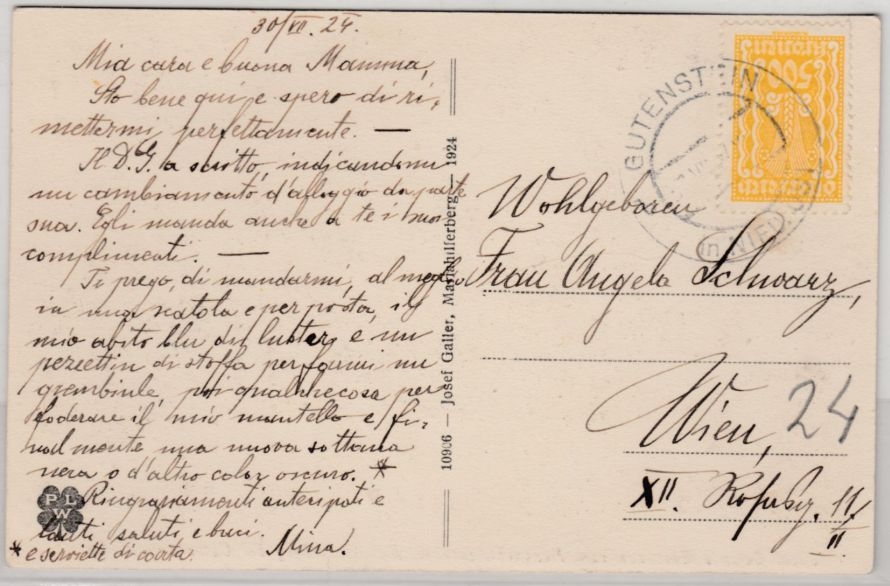 30/VII. 24.
Mia cara e buona Mamma,
Sto bene qui e spero di ri-
mettermi perfettamente. —
Il D.G. a scritto, indicandomi
un cambiamento d'alloggio da parte
sua. Egli manda anche a te i suoi
complimenti. —
Ti prego, di mandarmi, al meglio
in una scatola e per posta, il
mio abito blu di luster e un
pezettin di stoffa per farmi un
grembiule, poi qualchecosa per
foderare il mio mantello e fi-
nalmente una nuova sottana
nera o d'altro color oscuro. *
Ringraziamenti anticipati e
tanti saluti e baci.
Mina.
* e serviette di carta.
PL
W
10906 — Josef Galler, Mariahilferberg — 1924
500
GUTENSTEIN
in NIED.
Wohlgeboren
Frau Angela Schwarz,
Wien,
24
XII. 11/
II.